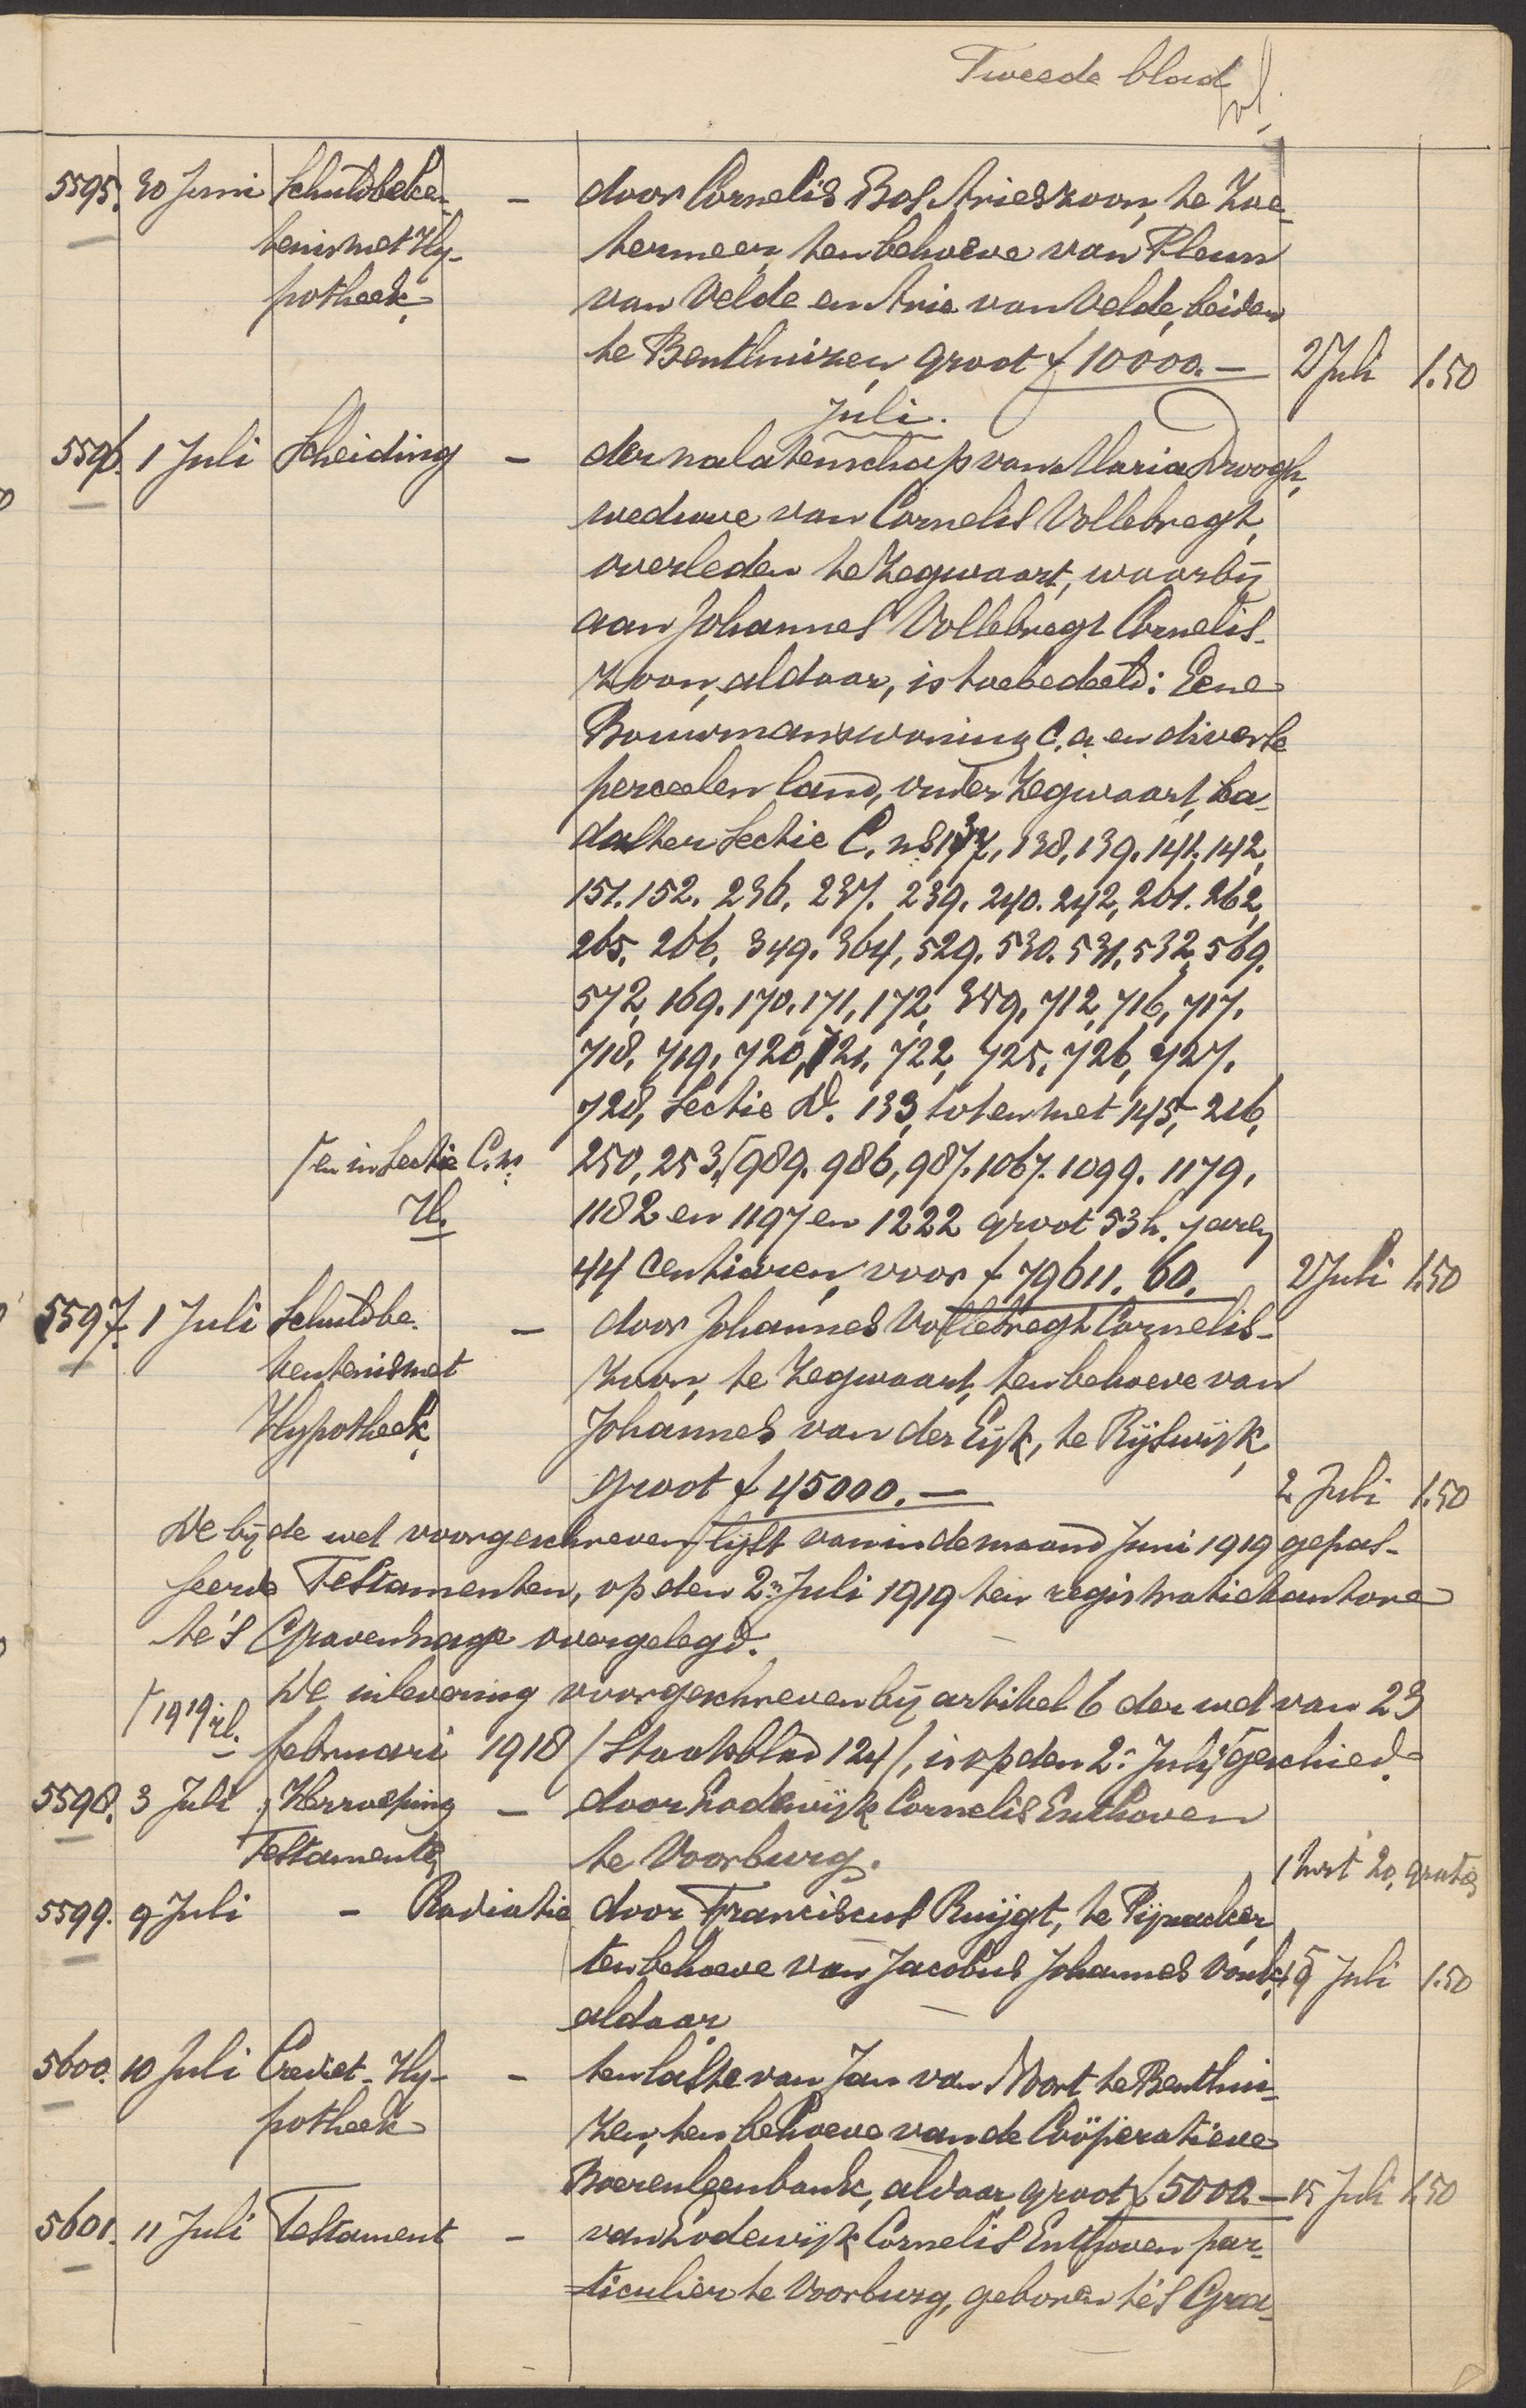 Tweede blad
5595. 30 Juni Schuldbeken- - door Cornelis Bos Arieszoon, te Zoe-
tenis met Hy- termeer, ten behoeve van Pleun
potheek, van Velde en Arie van Velde, beiden
te Benthuizen, groot f 10000.- 2 Juli 1.50
Juli.
5596. 1 Juli Scheiding - der nalatenschap van Maria Droogh,
weduwe van Cornelis Vollebregt,
overleden te Zegwaart, waarbij
aan Johannes Vollebregt Cornelis-
zoon, aldaar, is toebedeeld: Eene
Bouwmanswoning c.a. en diverse
perceelen land, onder Zegwaart, ka-
daster Sectie C. nos 137, 138, 139. 141. 142,
151. 152. 236. 237. 239. 240. 242, 261. 262,
265. 266, 349. 364, 529. 530. 531. 532, 569.
572, 169. 170. 171, 172, 359, 712, 716, 717.
718, 719, 720, 721, 722, 725, 726, 727.
728, Sectie D. 133, tot en met 145, 216,
/ en in Sectie C. no. 250, 253, / 989. 986, 987. 1067. 1099. 1179,
1182 en 1197 en 1222 groot 53 h. 7 aren,
44 centiaren, voor f 79611. 60. 2 Juli 1.50
5597. 1 Juli Schuldbe- - door Johannes Vollebregt Cornelis-
kentenis met zoon, te Zegwaart, ten behoeve van
Hypotheek, Johannes van der Eijk, te Rijswijk,
groot f 45000.- 2 Juli 1.50
De bij de wet voorgeschreven lijst van in de maand Juni 1919 gepas-
seerde Testamenten, op den 2n Juli 1919 ten registratiekantore
te 's Gravenhage overgelegd.
De inlevering voorgeschreven bij artikel 6 der wet van 23
/ 1919
februari 1918 / Staatsblad 124 /, is op den 2n Juli / geschied.
5598. 3 Juli Herroeping - door Lodewijk Cornelis Enthoven
Testament, te Voorburg. gratis
5599. 9 Juli - Radiatie door Franciscus Ruijgt, te Pijnacker,
ten behoeve van Jacobus Johannes Vonk, 15 Juli 1.50
aldaar
5600. 10 Juli Crediet-Hy- - ten laste van Jan van Noort te Benthui-
potheek zen, ten behoeve van de Coöperatieve
Boerenleenbank, aldaar, groot f 5000.- 15 Juli 1.50
5601. 11 Juli Testament - van Lodewijk Cornelis Enthoven par-
ticulier te Voorburg, geboren te 's Gra-